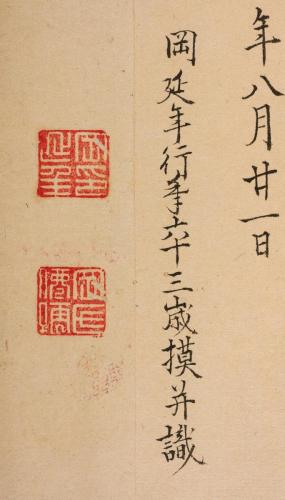 年八月廿一日
岡延年行年六十三歳摸并識